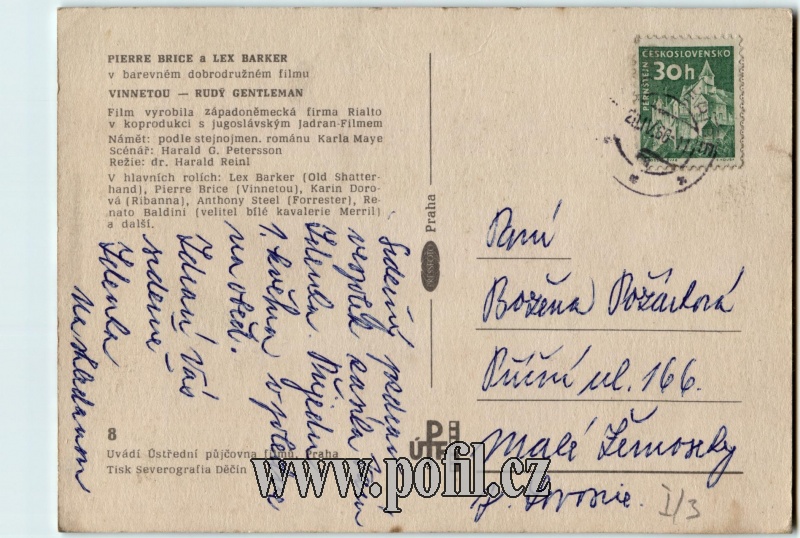 PIERRE BRICE a LEX BARKER
v barevném dobrodružném filmu
VINNETOU — RUDÝ GENTLEMAN
Film vyrobila západoněmecká firma Rialto
v koprodukci s jugoslávským Jadran-Filmem
Námět: podle stejnojmen. románu Karla Maye
Scénář: Harald G. Petersson
Režie: dr. Harald Reinl
V hlavních rolích: Lex Barker (Old Shatter-
hand), Pierre Brice (Vinnetou), Karin Doro-
vá (Ribanna), Anthony Steel (Forrester), Re-
nato Baldini (velitel bílé kavalerie Merril)
a další.
8
Uvádí Ústřední půjčovna filmů, Praha
Tisk Severografia Děčín
Srdečný pozdrav
Zdenka. Přijedu
1. května
na oběd.
Zdraví Vás
srdečně
Zdenka
Praha
ČESKOSLOVENSKO
30h
PERNŠTEJN
Paní
Božena Požárková
Říční ul. 166.
Malé Žernoseky
I/3
www.pofil.cz